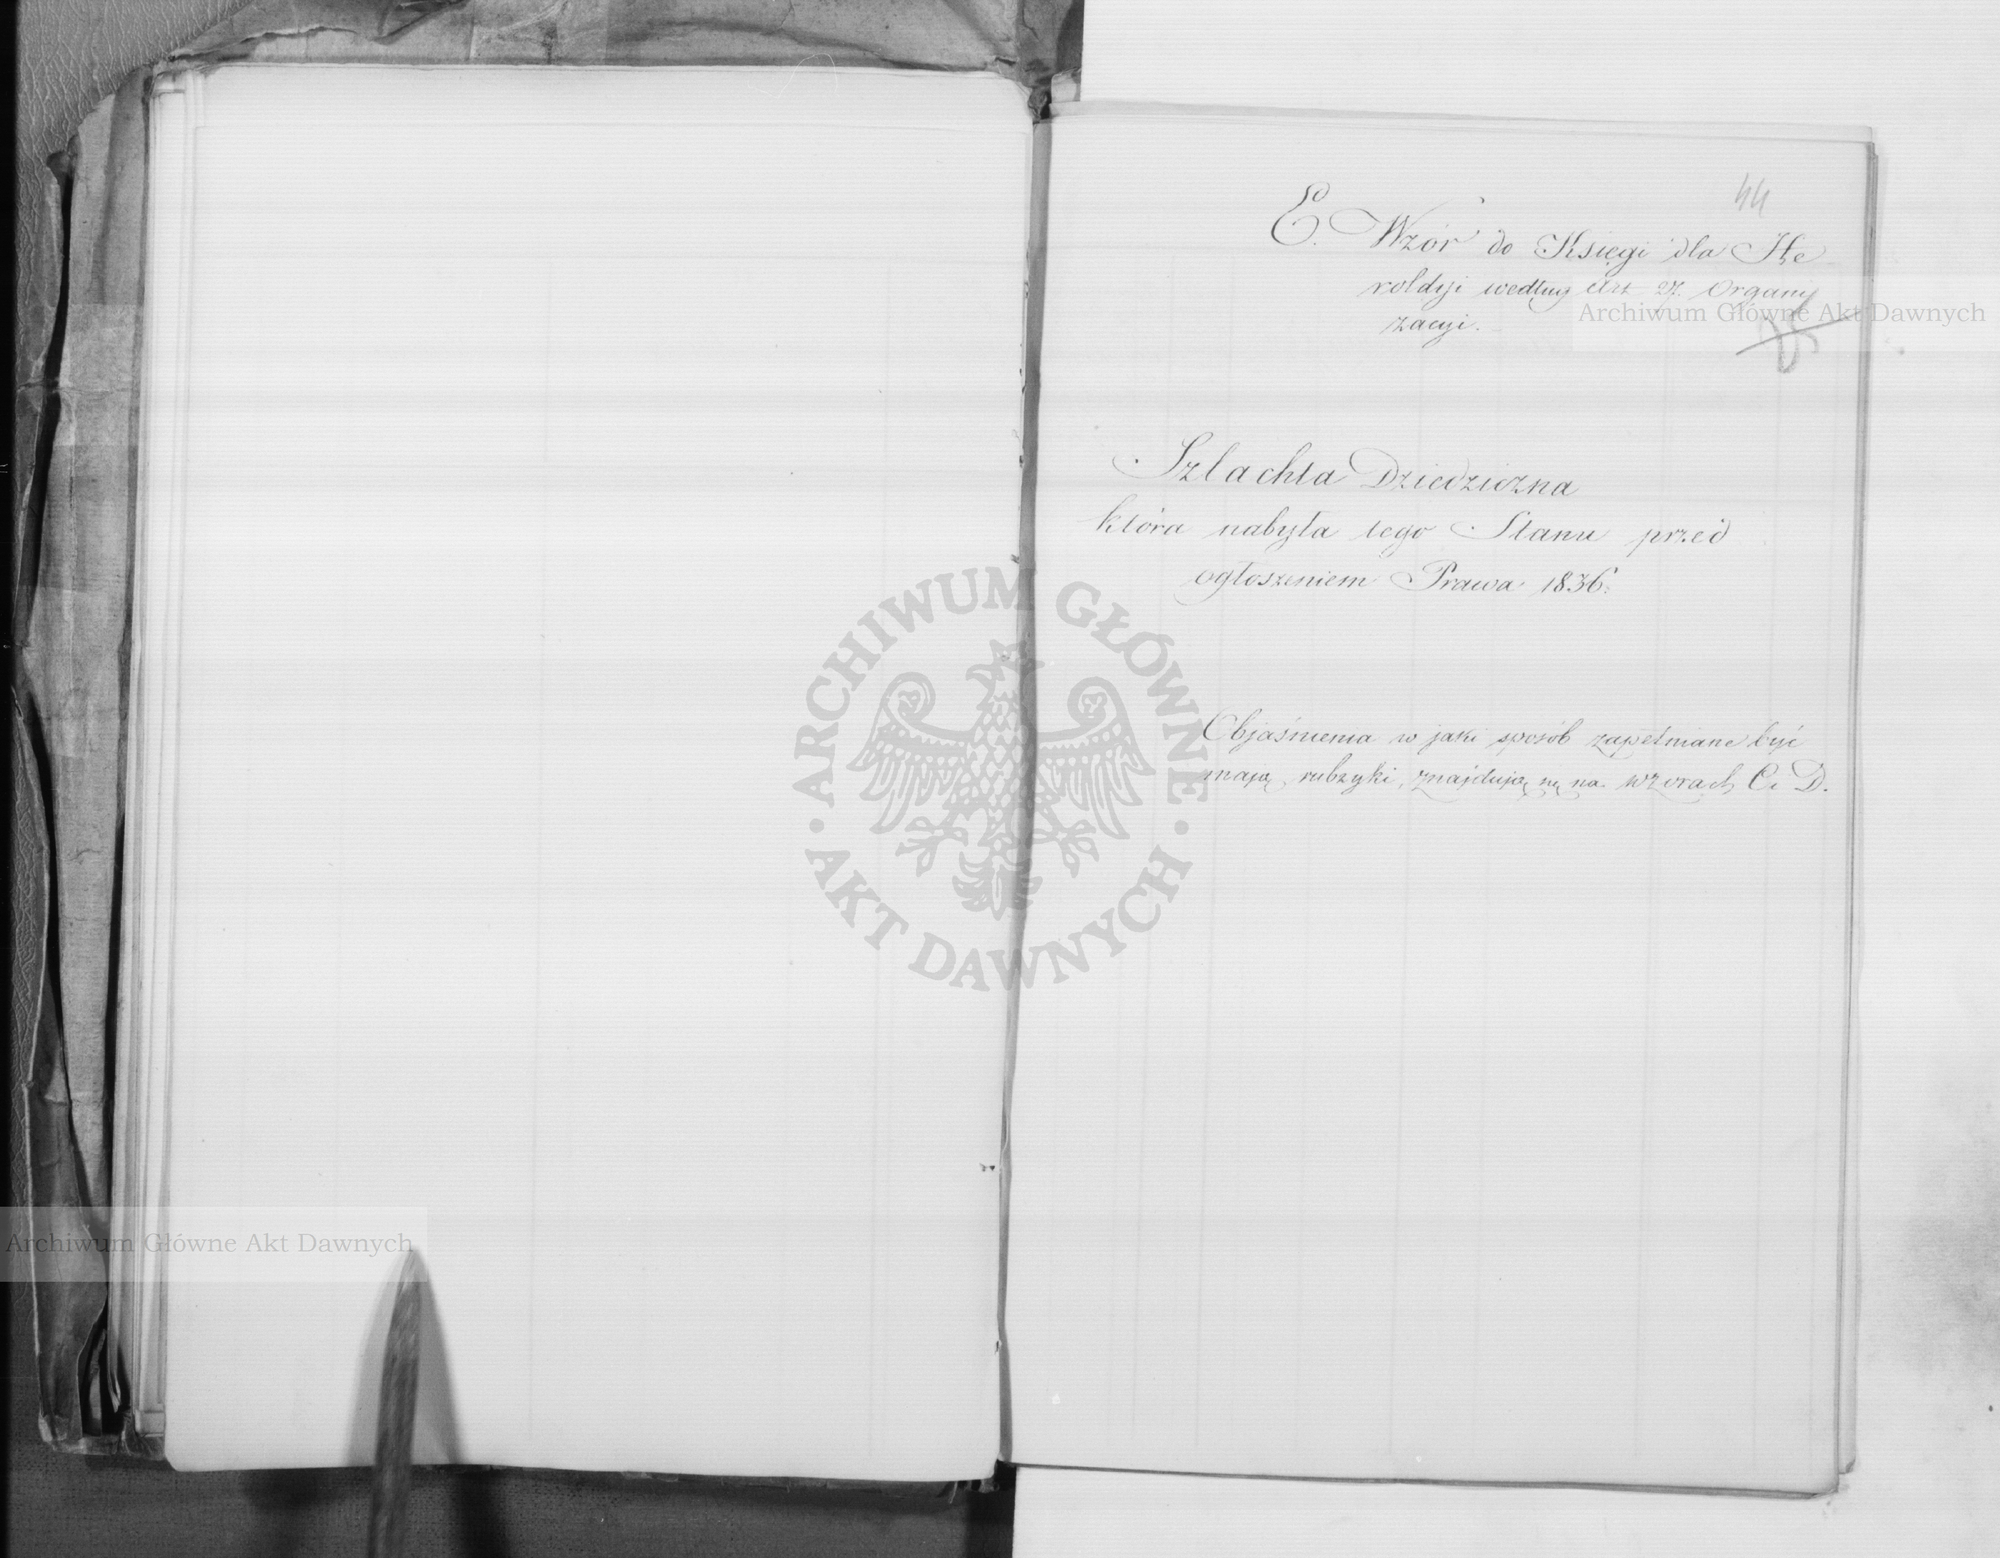 44
E. Wzór do Księgi dla He
roldyi według Art 27. Organi
zacyi.
Szlachta Dziedziczna
która nabyła tego Stanu przed
ogłoszeniem Prawa 1836.
Objaśnienia w jaki sposób zapełniane być
mają rubryki, znajdują się na wzorach C i D.
Archiwum Główne Akt Dawnych
ARCHIWUM GŁÓWNE · AKT DAWNYCH ·
Archiwum Główne Akt Dawnych